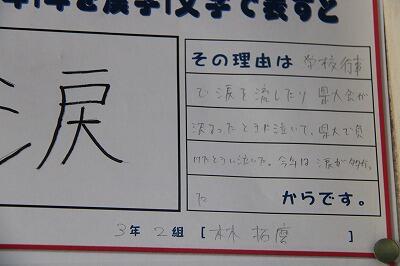 年1年を漢字1文字で表すと
涙
その理由は 学校行事
で涙を流したり 県大会が
決まったときに泣いて、県大で負
けたときに泣いた。今年は涙が多かっ
た からです。
3年 2組 [林 拓磨 ]